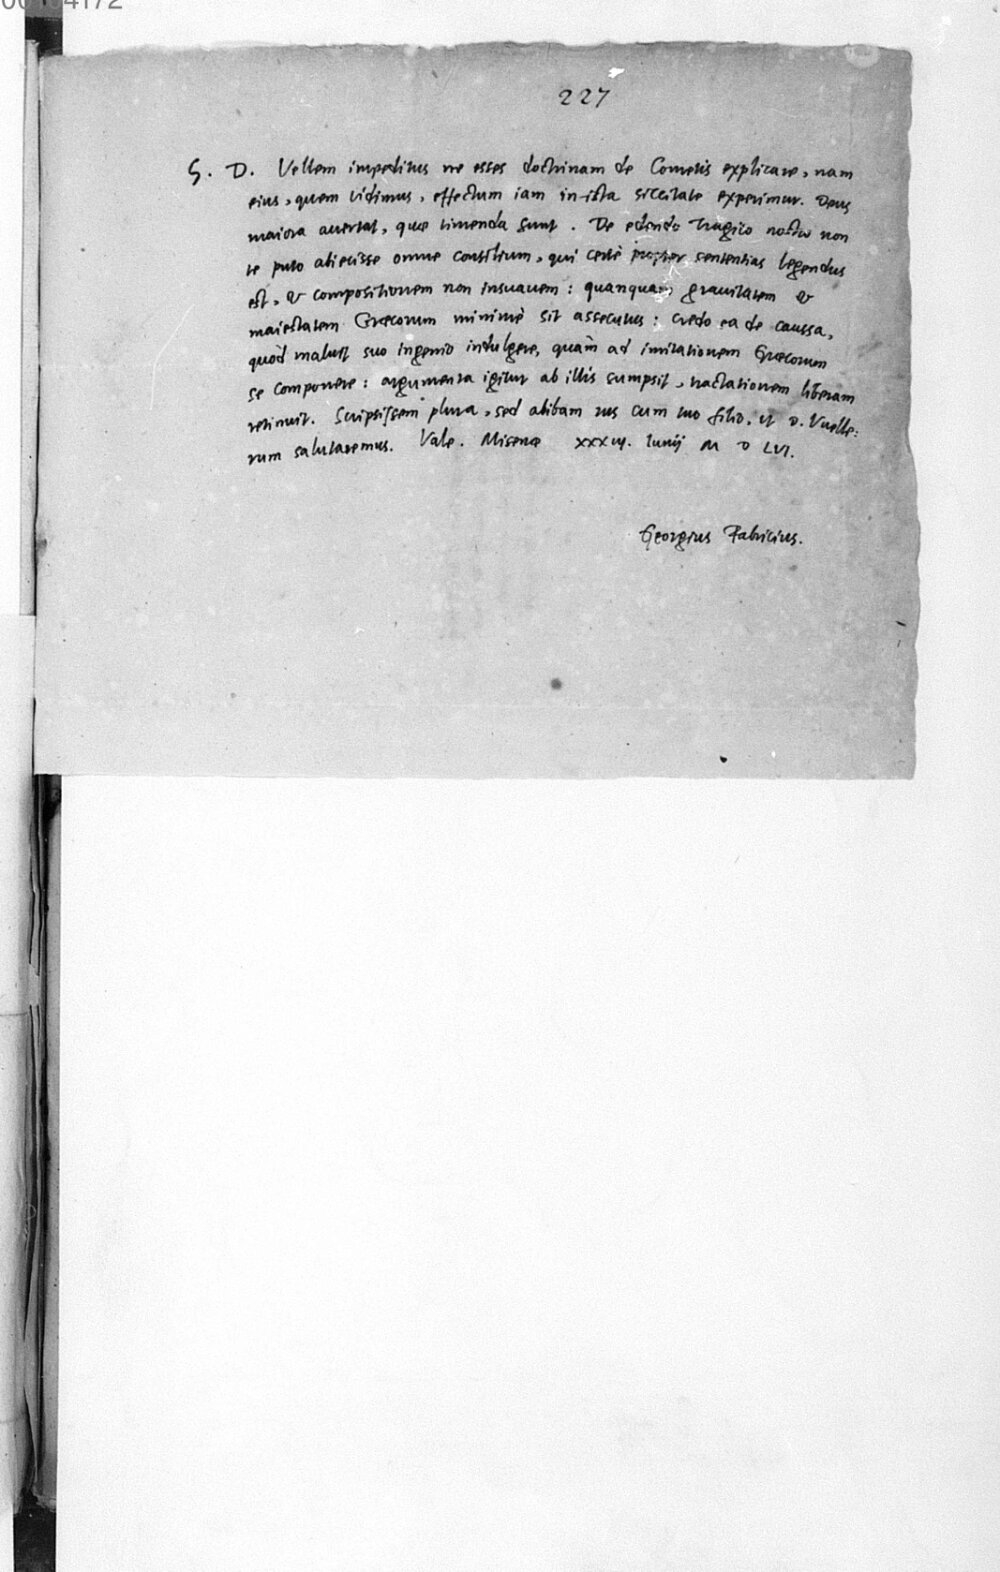 227
S. D. Vellem impeditus ne esses doctrinam de Cometis explicare, nam
eius, quem vidimus, effectum iam in ista siccitate experimur. Deus
maiora avertat, quae timenda sunt. De edendo Tragico nostro non
te puto abiecisse omne consilium, qui certè propter sententias legendus
est, & compositionem non insuavem: quanquam gravitatem &
maiestatem Græcorum minimè sit assecutus: credo ea de caussa,
quòd maluit suo ingenio indulgere, quàm ad imitationem Græcorum
se componere: argumenta igitur ab illis sumpsit, tractationem liberam
retinuit. Scripsissem plura, sed abibam rus cum tuo filio, ut D. Vuelle:
rum salutaremus. Vale. Misenæ Iunij M D LVI.
Georgius Fabricius.